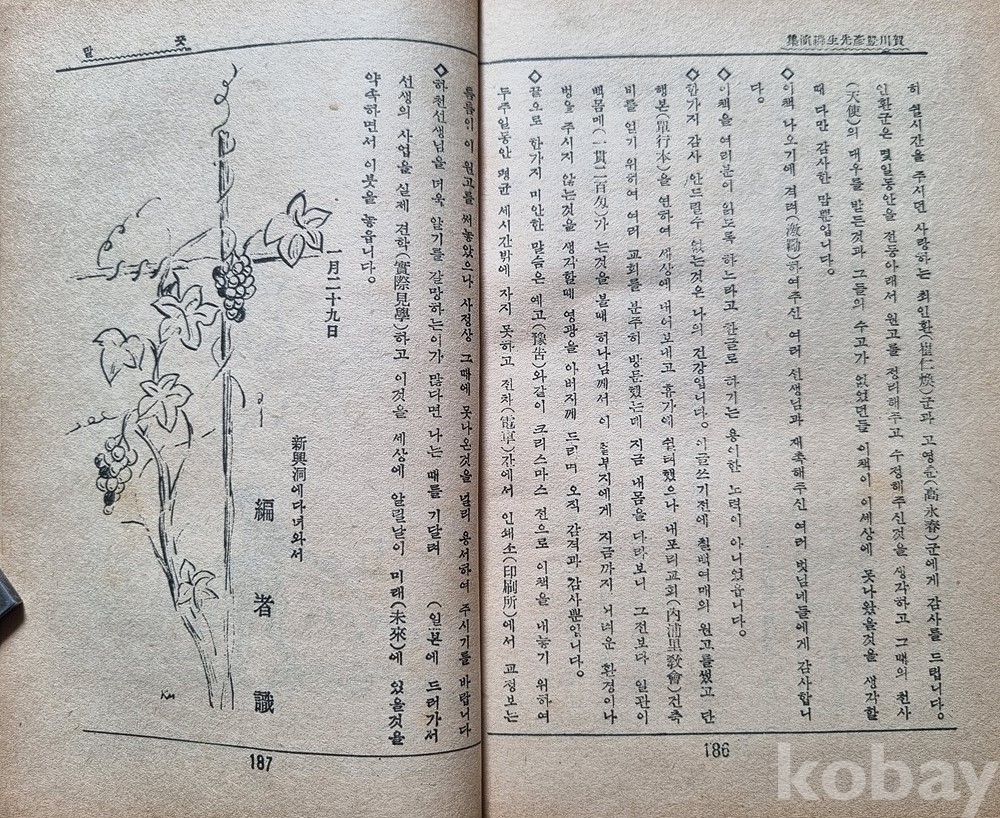 賀川豊彦先生講演集
히 쉴시간을 주시던 사랑하는 최인환(崔仁煥)군과 고영춘(高永春)군에게 감사를 드립니다。
인환군은 몇일동안을 전등아래서 원고를 정리해주고 수정해주신것을 생각하고 그때의 천사
(天使)의 대우를 받든것과 그들의 수고가 없었던들 이책이 이세상에 못나왔을것을 생각할
때 다만 감사한 맘뿐입니다。
◇이책 나오기에 격려(激勵)하여주신 여러 선생님과 재촉해주신 여러 벗님네들에게 감사합니
다。
◇이책을 여러분이 읽도록 하느라고 한글로 하기는 용이한 노력이 아니었읍니다。
◇한가지 감사 안드릴수 없는것은 나의 건강입니다。이글쓰기전에 칠백여매의 원고를썼고 단
행본(單行本)을 연하여 세상에 내어보내고 휴가에 쉴려했으나 내포리교회(內浦里敎會)건축
비를 얻기 위하여 여러 교회를 분주히 방문했는데 지금 내몸을 다라보니 그전보다 일관이
백몸메(一貫二百匁)가 는것을 볼때 하나님께서 이 졸부지에게 지금까지 어려운 환경이나
병을 주시지 않는것을 생각할때 영광을 아버지께 드리며 오직 감격과 감사뿐입니다。
◇끝으로 한가지 미안한 말슴은 예고(豫告)와같이 크리스마스 전으로 이책을 내놓기 위하여
두주일동안 평균 세시간밖에 자지 못하고 전차(電車)간에서 인쇄소(印刷所)에서 교정보는
186
끗 말
틈틈이 이 원고를 써놓았으나 사정상 그때에 못나온것을 널리 용서하여 주시기를 바랍니다
◇하천선생님을 더욱 알기를 갈망하는이가 많다면 나는 때를 기달려 (일본에 드러가서
선생의 사업을 실제 견학(實際見學)하고 이것을 세상에 알릴날이 미래(未來)에 있을것을
약속하면서 이붓을 놓읍니다。
一月二十九日
新興洞에다녀와서
編者識
187
kobay